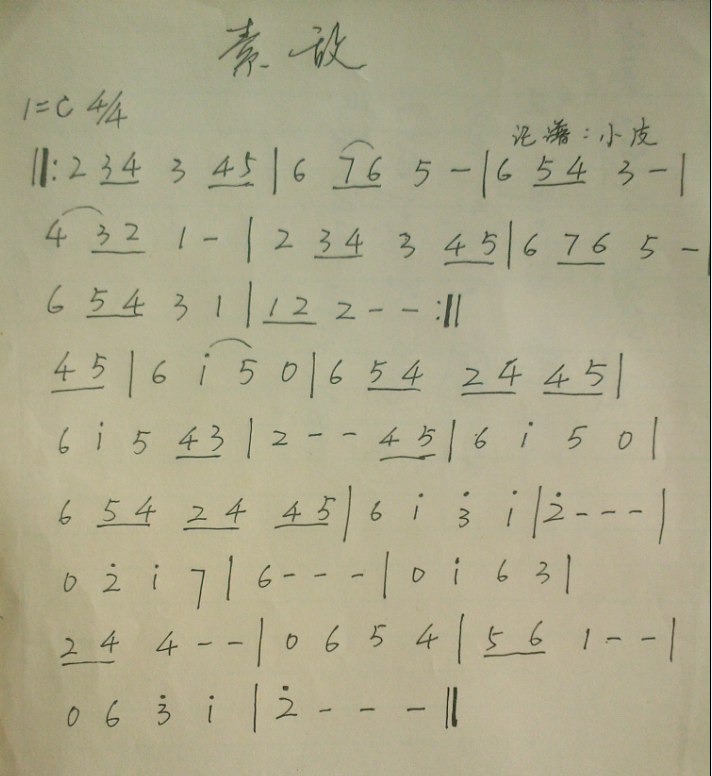 素敌
1=C 4/4
记谱:小皮
‖: 2 34 3 45 | 6 76 5 - | 6 54 3 - |
4 32 1 - | 2 34 3 45 | 6 76 5 - |
6 54 3 1 | 12 2 - - :‖
45 | 6 i 5 0 | 6 54 24 45 |
6 i 5 43 | 2 - - 45 | 6 i 5 0 |
6 54 24 45 | 6 i 3̇ i | 2̇ - - - |
0 2̇ i 7 | 6 - - - | 0 i 6 3 |
24 4 - - | 0 6 5 4 | 56 1 - - |
0 6 3̇ i | 2̇ - - - ‖